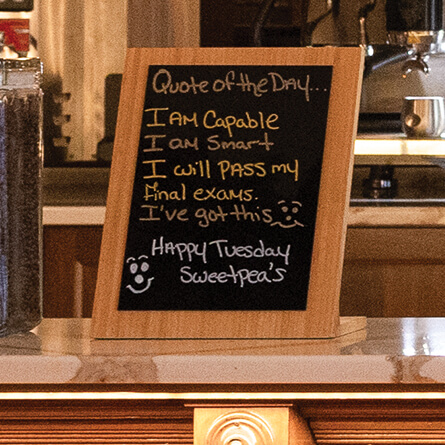 Quote of the Day...
I AM Capable
I am Smart
I will PASS my
final exams.
I've got this
HAPPY TUESDAY
Sweetpea's